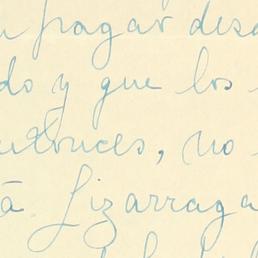 pagar desd
do y que los
entonces, no
á Lizarraga